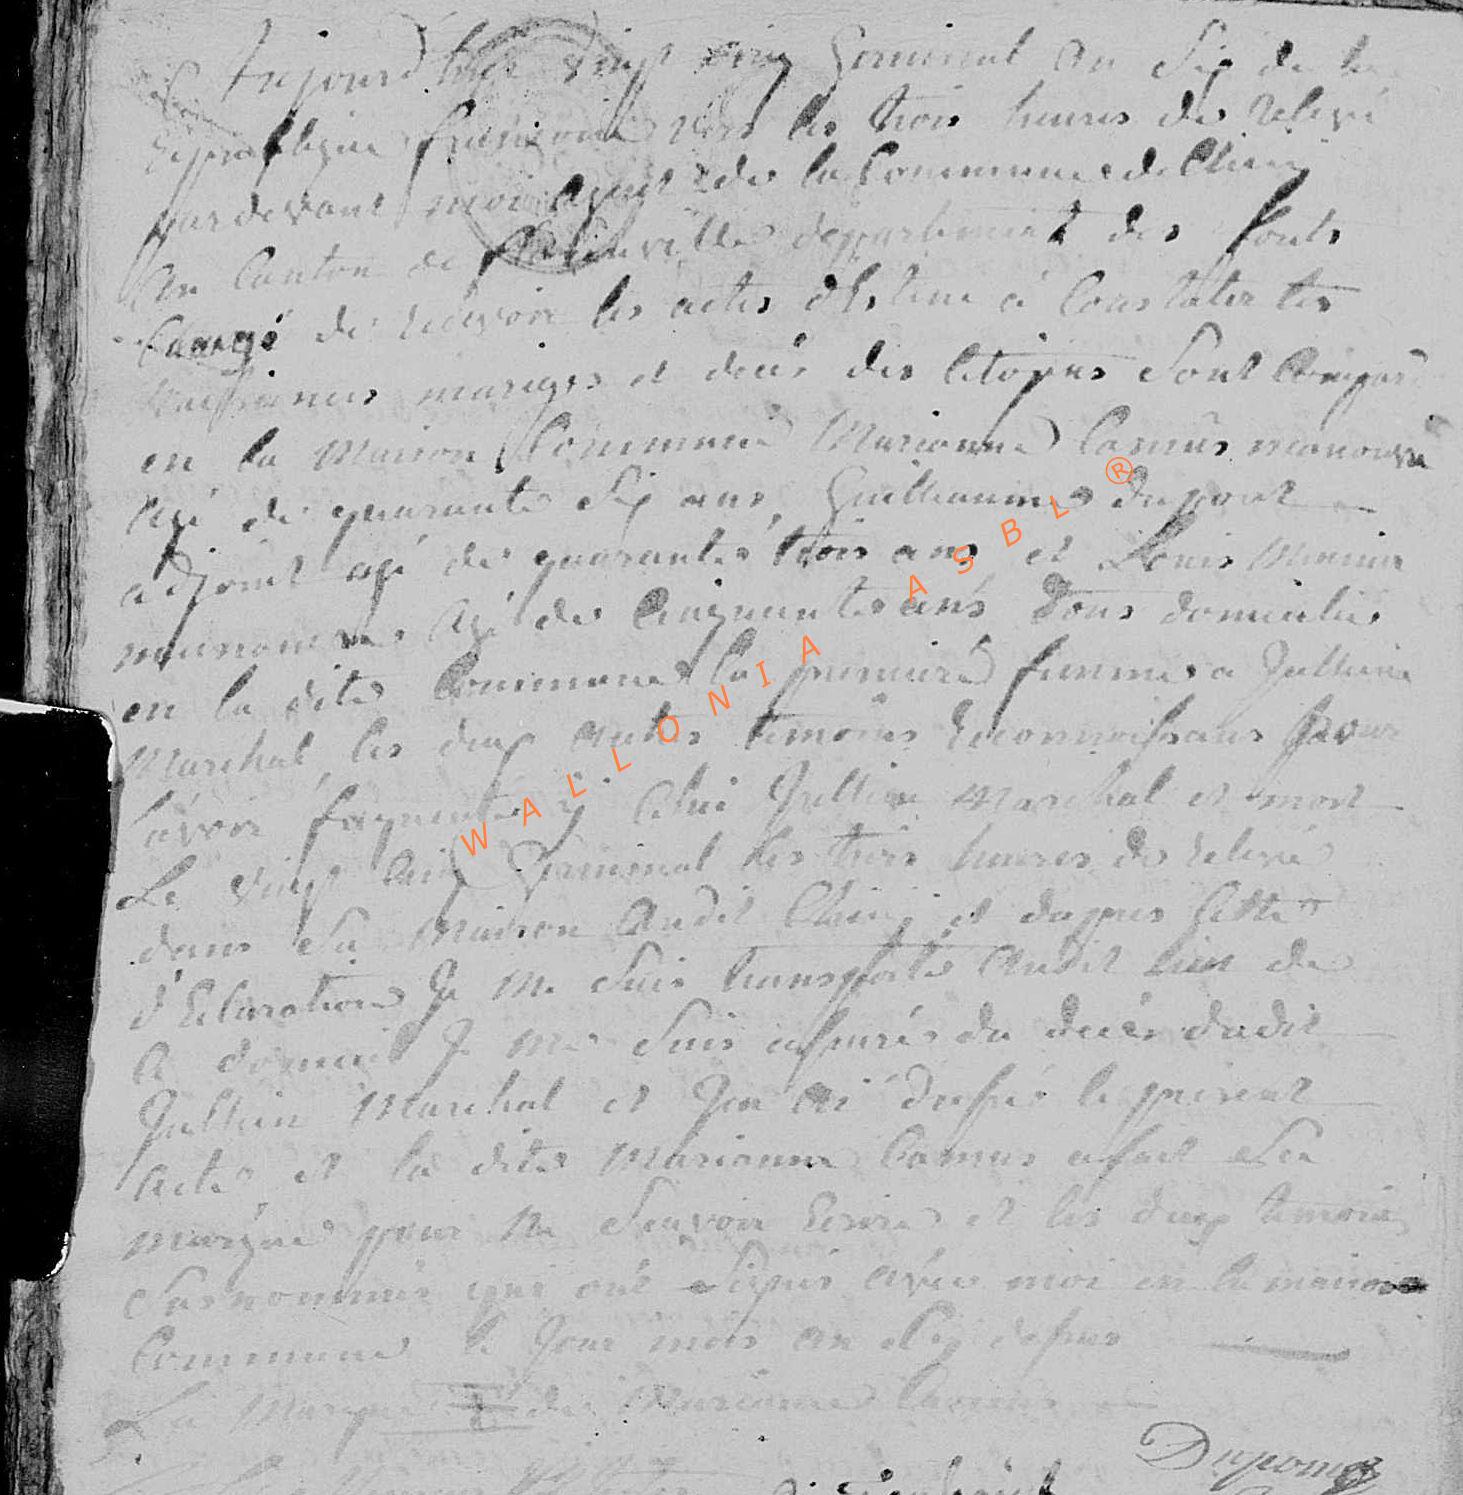 Aujourd'hui vingt cinq Germinal an Six de la
Republique francoise vers les trois heures de relevé
pardevant moi Agent de la Commune de Chiny
au Canton de florenville departement des forets
Chargé de recevoir les actes destiné a Constater les
naissances mariges et deces des Citoyens Sont Comparu
en la Maison Commune Marianne Camus manouvre
agé de quarante Six ans, Guilliaume Dupont
adjoint agé de quarante trois ans et Louis
manouvre agé de Cinquante ans Tous domicilies
en la dite Commune la premiere femme a Jullien
Marchal les deux autres temoins reconnoissans pour
lavoir frequenté Celui Jullien Marchal et mort
Le vingt Cinq Germinal les trois heures de relevé
dans Sa Maison audit Chiny et dapres Cette
d'Eclaration Je me Suis transporté audit lieu de
domicil Je me Suis assurés du deces dudit
Jullien Marchal et Jen ai dressé le present
acte et la dite Marianne Camus a fait Sa
marque pour ne Scavoir Ecrire et les deux temoin
Susnommés qui ont Signé avec moi en la maison
Commune le Jour mois an Six dessus
La Marque de Marianne Camus
Dupont
WALLONIA ASBL ®